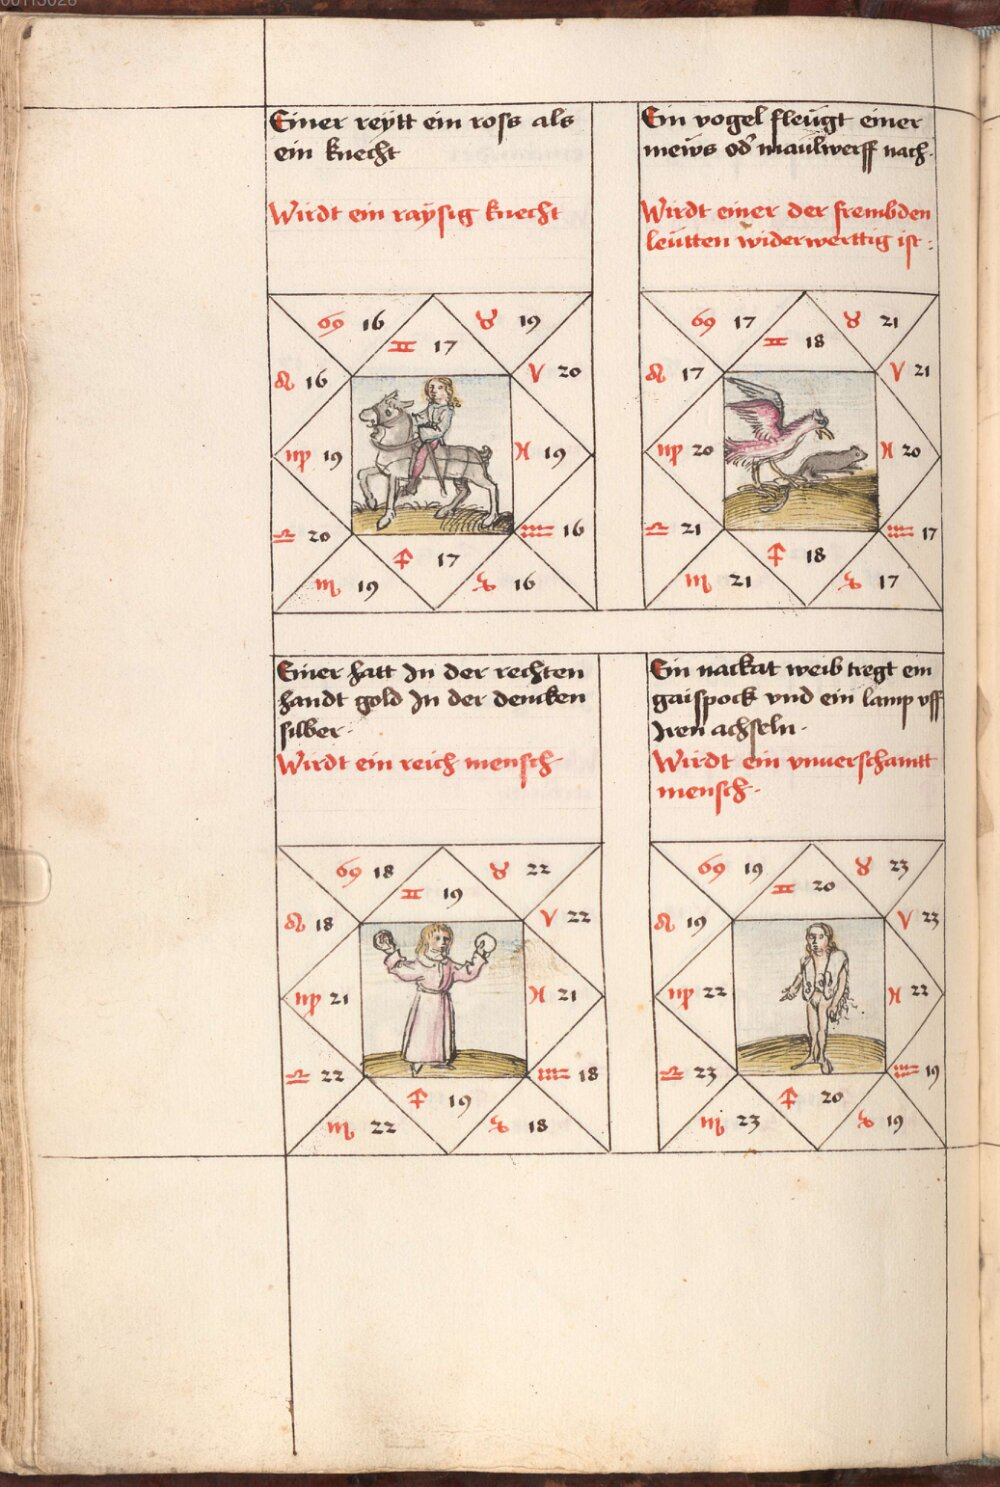 Einer reÿtt ein ross als
ein knecht
Wirdt ein raÿsig knecht
♋ 16
♊ 17
♉ 19
♌ 16
♈ 20
♍ 19
♓ 19
♎ 20
♒ 16
♏ 19
♐ 17
♑ 16
Ein vogel fleügt einer
meẅs od' maulwerff nach.
Wirdt einer der frembden
leütten widerwerttig ist :
♋ 17
♊ 18
♉ 21
♌ 17
♈ 21
♍ 20
♓ 20
♎ 21
♒ 17
♏ 21
♐ 18
♑ 17
Einer hatt In der rechten
handt gold In der dencken
silber.
Wirdt ein reich mensch
♋ 18
♊ 19
♉ 22
♌ 18
♈ 22
♍ 21
♓ 21
♎ 22
♒ 18
♏ 22
♐ 19
♑ 18
Ein nackat weib tregt ein
gaispock vnd ein lamp vff
Iren achseln.
Wirdt ein vnuerschamtt
mensch.
♋ 19
♊ 20
♉ 23
♌ 19
♈ 23
♍ 22
♓ 22
♎ 23
♒ 19
♏ 23
♐ 20
♑ 19